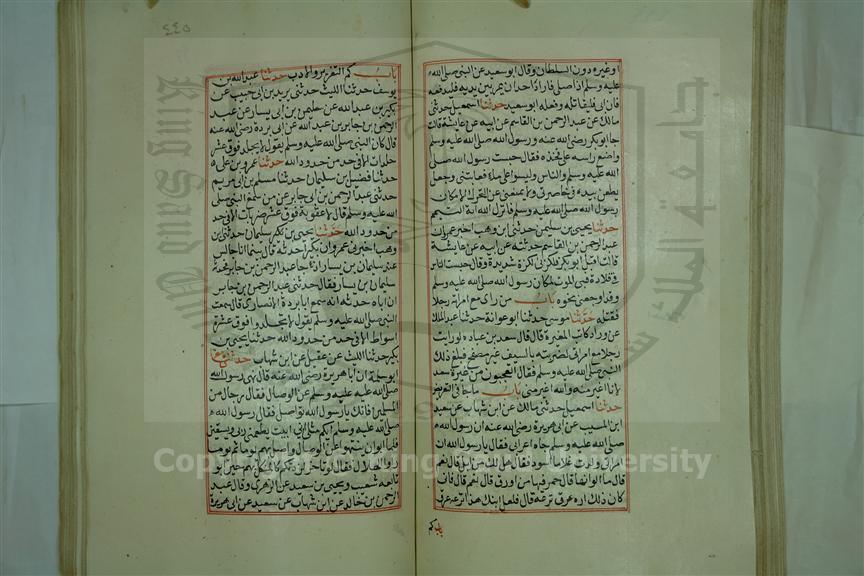 او غيره دون السلطان وقال ابو سعيد عن النبي صلى الله
عليه وسلم اذا صلى فاراد احد ان يمر بين يديه فليدفعه
فان ابى فليقاتله وفعله ابو سعيد حدثنا اسمعيل حدثني
مالك عن عبد الرحمن بن القاسم عن ابيه عن عايشة قالت
جا ابو بكر رضى الله عنه ورسول الله صلى الله عليه وسلم
واضع راسه على فخذي فقال حبست رسول الله صلى
الله عليه وسلم والناس وليسوا على ماء فعاتبني وجعل
يطعن بيده في خاصرتي ولا يمنعني من التحرك الا مكان
رسول الله صلى الله عليه وسلم فانزل الله اية التيمم
حدثنا يحيى بن سليمن حدثني ابن وهب اخبرني عمرو ان
عبد الرحمن بن القاسم حدثه عن ابيه عن عايشة
قالت اقبل ابو بكر فلكزني لكزة شديدة وقال حبست الناس
في قلادة فبي الموت لمكان رسول الله صلى الله عليه وسلم
وقد اوجعني نحوه باب من راى مع امراته رجلا
فقتله حدثنا موسى حدثنا ابو عوانة حدثنا عبد الملك
عن وراد كاتب المغيرة قال قال سعد بن عبادة لو رايت
رجلا مع امراتي لضربته بالسيف غير مصفح فبلغ ذلك
النبي صلى الله عليه وسلم فقال اتعجبون من غيرة سعد
لانا اغير منه والله اغير مني باب ما جا في التعريض
حدثنا اسمعيل حدثني مالك عن ابن شهاب عن سعيد
ابن المسيب عن ابي هريرة رضى الله عنه ان رسول الله
صلى الله عليه وسلم جاه اعرابي فقال يا رسول الله ان
امراتي ولدت غلاما اسود فقال هل لك من ابل قال نعم
قال ما الوانها قال حمر قال فيها من اورق قال نعم قال فانى
كان ذلك اراه عرق نزعه قال فلعل ابنك هذا نزعه عرق
باب كم
٤٤٥
باب كم التعزير والادب حدثنا عبد الله بن
يوسف حدثنا الليث حدثني يزيد بن ابي حبيب عن
بكير بن عبد الله عن سليمن بن يسار عن عبد
الرحمن بن جابر بن عبد الله عن ابي بردة رضى الله عنه
قال كان النبي صلى الله عليه وسلم يقول لا يجلد فوق عشر
جلدات الا في حد من حدود الله حدثنا عمرو بن علي
حدثنا فضيل بن سليمان حدثنا مسلم بن ابي مريم
حدثني عبد الرحمن بن جابر عن من سمع النبي صلى
الله عليه وسلم قال لا عقوبة فوق عشر ضربات الا في حد
من حدود الله حدثنا يحيى بن سليمان حدثني ابن
وهب اخبرني عمرو ان بكيرا حدثه قال بينما انا جالس
عند سليمان بن يسار اذ جا عبد الرحمن بن جابر فحدث
سليمان بن يسار فقال حدثني عبد الرحمن بن جابر
ان اباه حدثه انه سمع ابا بردة الانصاري قال سمعت
النبي صلى الله عليه وسلم يقول لا تجلدوا فوق عشرة
اسواط الا في حد من حدود الله حدثنا يحيى بن
بكير حدثنا الليث عن عقيل عن ابن شهاب حدثنا
ابو سلمة ان ابا هريرة رضى الله عنه قال نهى رسول الله
صلى الله عليه وسلم عن الوصال فقال رجال من
المسلمين فانك يا رسول الله تواصل فقال رسول الله
صلى الله عليه وسلم ايكم مثلي اني ابيت يطعمني ربي ويسقين
فلما ابوا ان ينتهوا عن الوصال واصل بهم يوما ثم يوما ثم
راوا الهلال فقال لو تاخر لزدتكم كالمنكل بهم حين ابوا
تابعه شعيب ويحيى بن سعيد عن الزهري وقال عبد
الرحمن بن خالد عن ابن شهاب عن سعيد عن ابي هريرة